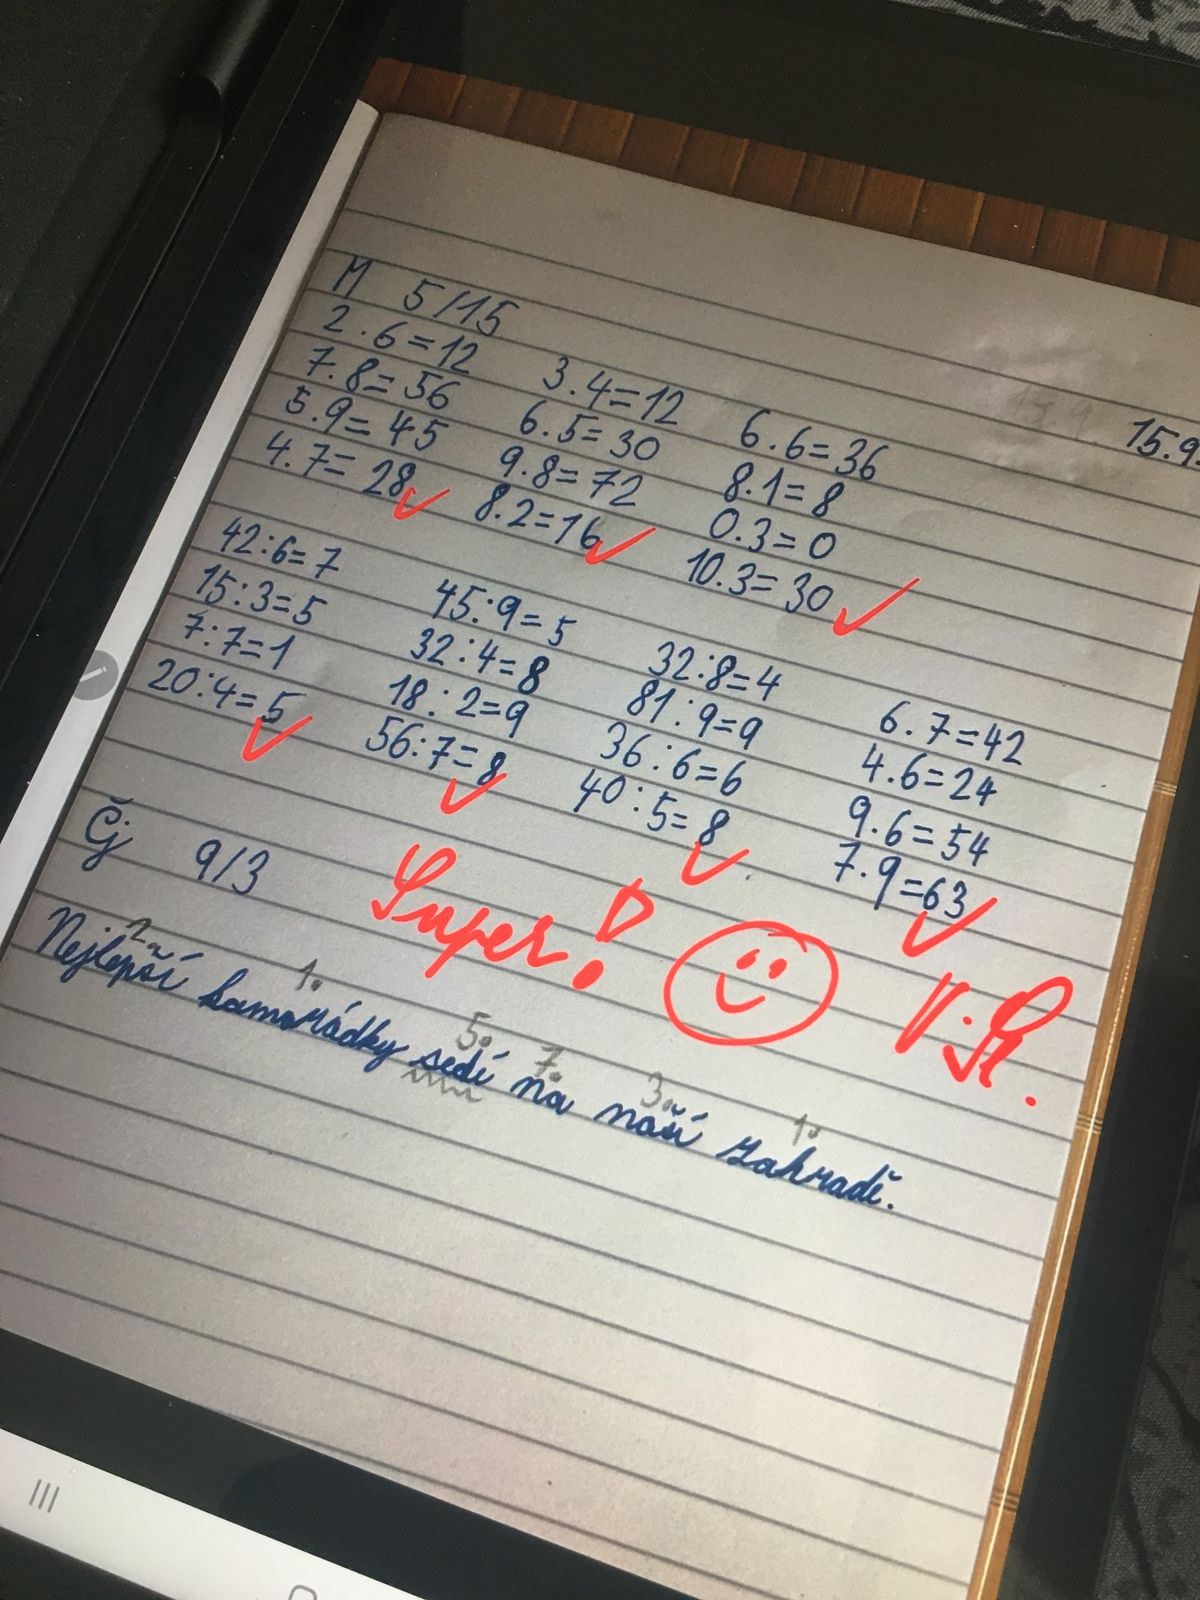 15.9.
M 5/15
2.6=12 3.4=12 6.6=36
7.8=56 6.5=30 8.1=8
5.9=45 9.8=72 0.3=0
4.7=28 8.2=16 10.3=30
42:6=7 45:9=5 32:8=4 6.7=42
15:3=5 32:4=8 81:9=9 4.6=24
7:7=1 18:2=9 36:6=6 9.6=54
20:4=5 56:7=8 40:5=8 7.9=63
Čj 9/3
Super!
2. 1. 5. 7. 3. 1.
Nejlepší kamarádky sedí na naší zahradě.